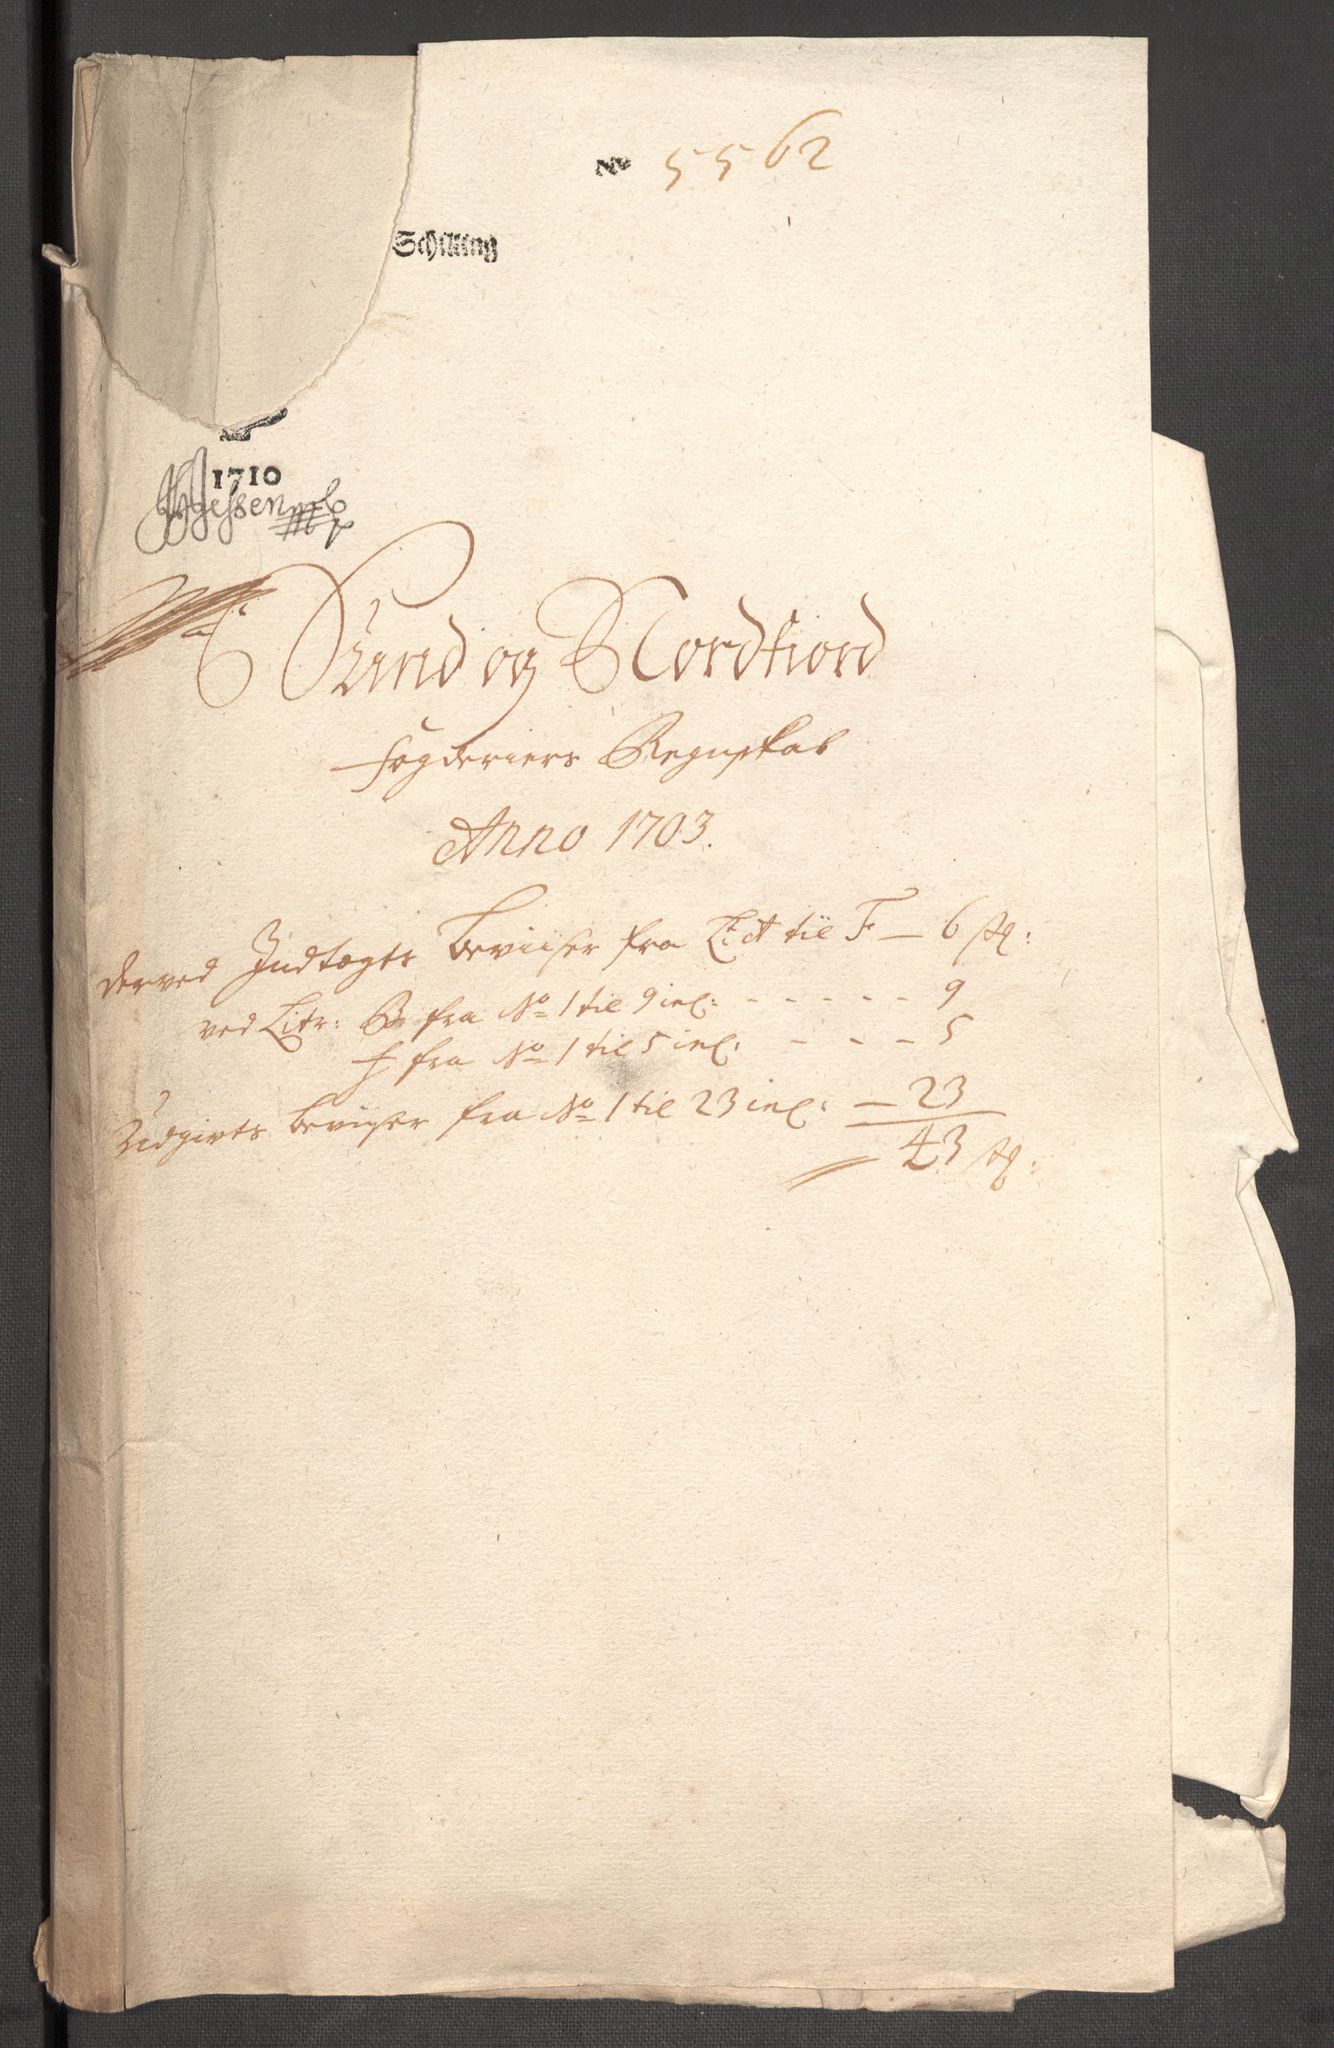 5562
Schilling
1710
Sund og Nordfiord
fogderiers Regnskab
Anno 1703.
derved Indtægts beviiser fra Lit A til F — 6 st:
ved Litr: B fra No 1 til 9 incl: - - - - - - 9
f fra No 1 til 5 incl: - - - - 5
Udgivts beviser fra No 1 til 23 incl: — 23
43 st: